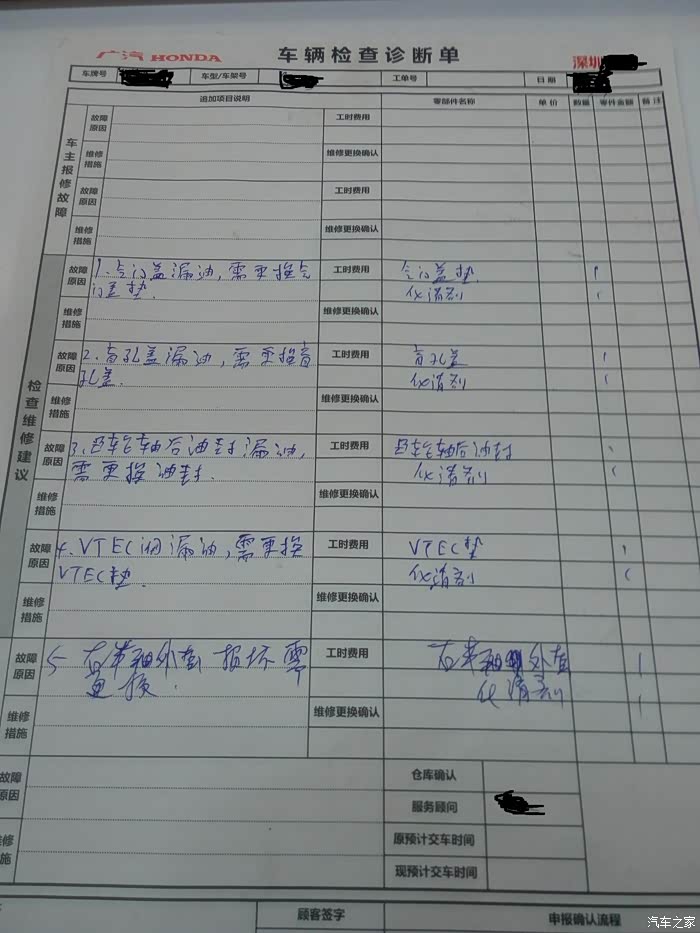 广汽 HONDA 车辆检查诊断单 深圳
车牌号 车型/车架号 工单号 日期
追加项目说明 零部件名称 单价 数量 零件金额 备注
车主报修故障
故障原因 工时费用
维修措施 维修更换确认
故障原因 工时费用
维修措施 维修更换确认
检查维修建议
故障原因 1.气门盖漏油,需更换气 工时费用 气门盖垫. 1
门盖垫. 化清剂 1
维修措施 维修更换确认
故障原因 2.盲孔盖漏油,需更换盲 工时费用 盲孔盖 1
孔盖. 化清剂 1
维修措施 维修更换确认
故障原因 3.凸轮轴后油封漏油, 工时费用 凸轮轴后油封 1
需更换油封. 化清剂 1
维修措施 维修更换确认
故障原因 4.VTEC阀漏油,需更换 工时费用 VTEC垫 1
VTEC垫. 化清剂 1
维修措施 维修更换确认
故障原因 5 右半轴外套损坏需 工时费用 右半轴外套 1
更换. 化清剂 1
维修措施 维修更换确认
故障原因 仓库确认
服务顾问
维修措施 原预计交车时间
现预计交车时间
顾客签字 申报确认流程
汽车之家